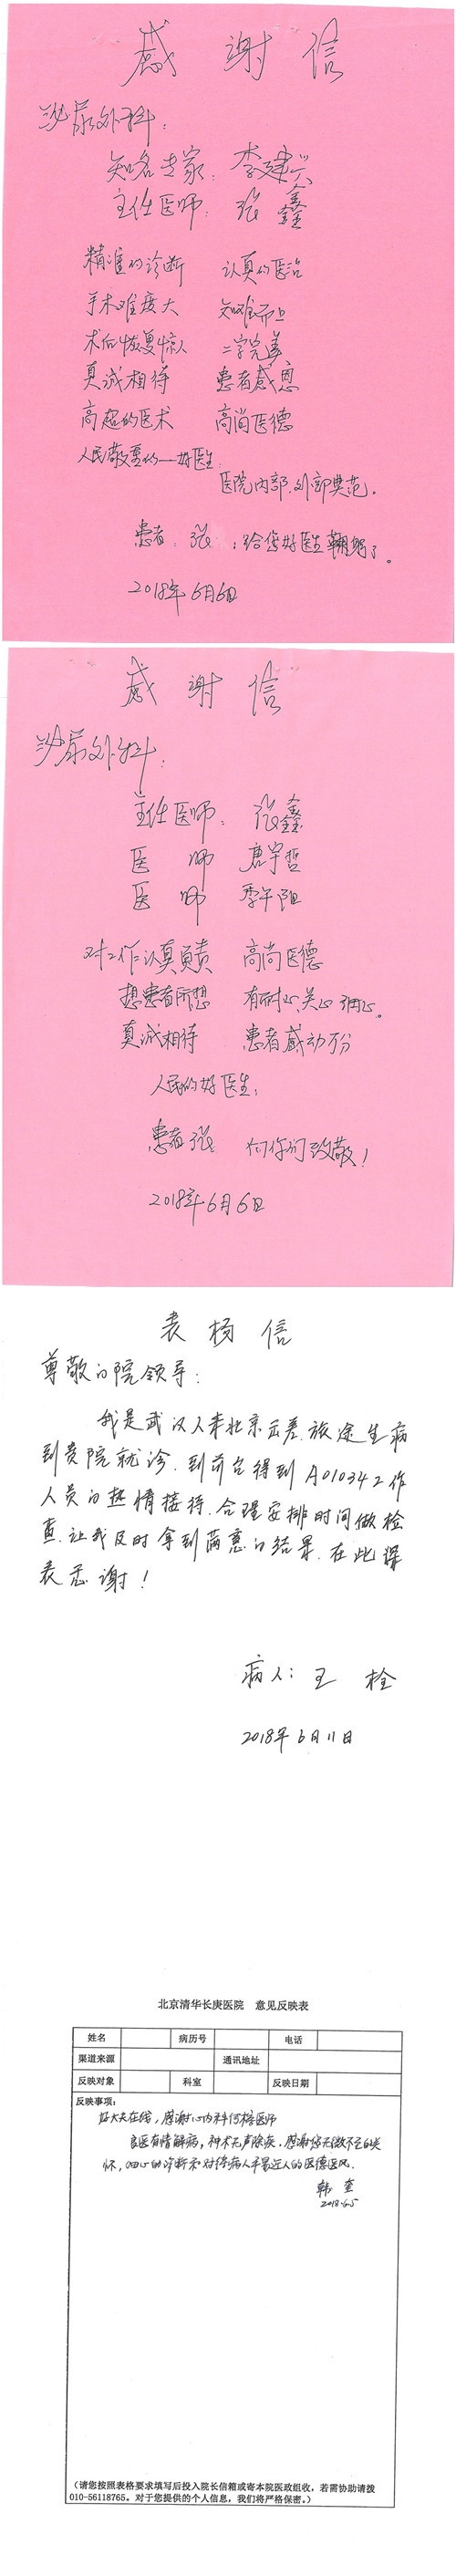 感谢信
泌尿外科:
知名专家: 李建兴
主任医师: 张鑫
精准的诊断 认真的医治
手术难度大 知难而上
术后恢复惊人 二字完美
真诚相待 患者感恩
高超的医术 高尚医德
人民敬重的一好医生
医院内部.外部典范。
患者: 张 :给您好医生鞠躬了。
2018年6月6日
感谢信
泌尿外科:
主任医师: 张鑫
医 师 唐宇哲
医 师
对工作认真负责 高尚医德
想患者所想 有耐心、关心 细心。
真诚相待 患者感动万分
人民的好医生:
患者张 向你们致敬!
2018年6月6日
表杨信
尊敬的院领导:
我是武汉人来北京出差.旅途生病
到贵院就诊.到前台得到A01034工作
人员的热情接待.合理安排时间做检
查.让我及时拿到满意的结果.在此深
表感谢!
病人: 王 栓
2018年6月11日
北京清华长庚医院 意见反映表
姓名 病历号 电话
渠道来源 通讯地址
反映对象 科室 反映日期
反映事项:
好大夫在线,感谢心内科何榕医师
良医有情解病,神术无声除疾,感谢您无微不至的关
怀,细心的诊断和对待病人平易近人的医德医风.
韩 奎
2018.6.5
(请您按照表格要求填写后投入院长信箱或寄本院医政组收,若需协助请拨
010-56118765。对于您提供的个人信息,我们将严格保密。)